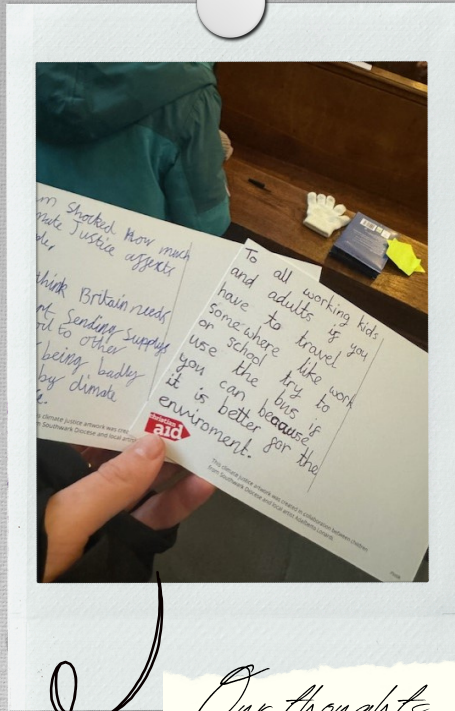 m Shocked How much
mate Justice affects
der
think Britain needs
rt Sending Supplys
oil to other
being badly
by climate
e.
s climate justice artwork was
from Southwark Diocese and local artist
To all working kids
and adults if you
have to travel
somewhere like work
or school try to
use the bus if
you can beacause
it is better for the
enviroment.
christian
aid
This climate justice artwork was created in collaboration between children
from Southwark Diocese and local artist
Our thoughts